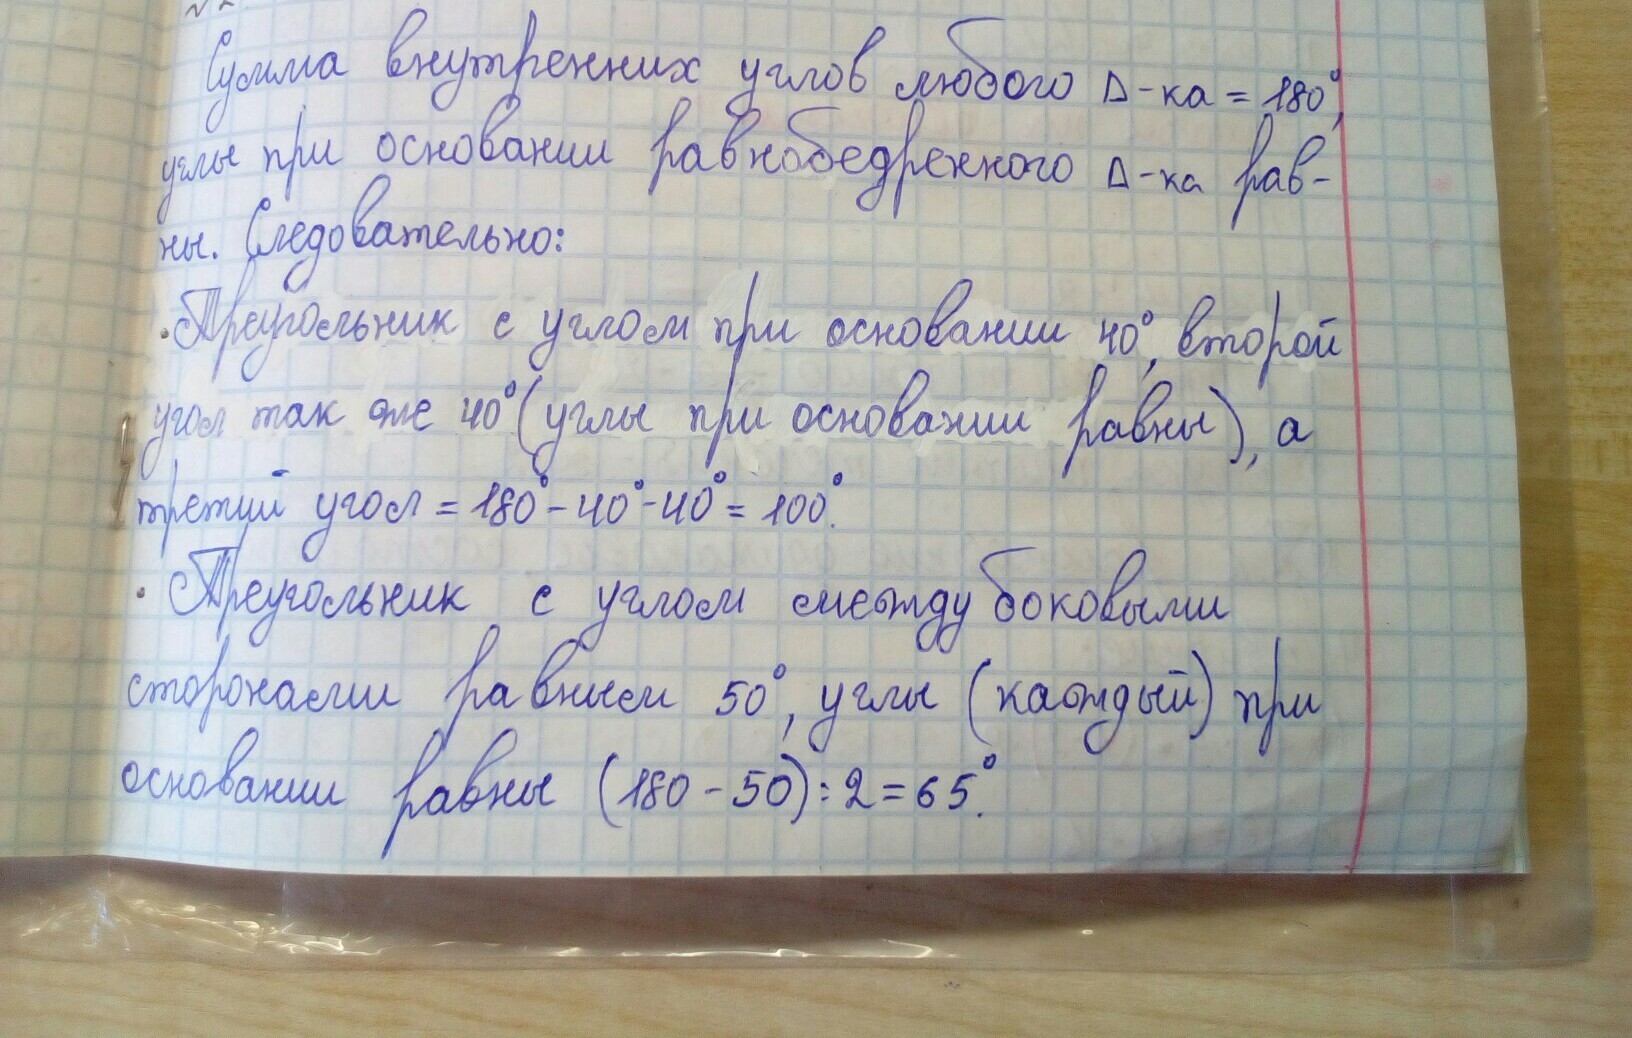 Сумма внутренних углов любого Δ-ка = 180°,
углы при основании равнобедренного Δ-ка рав-
ны. Следовательно:
· Треугольник с углом при основании 40°, второй
угол так же 40° (углы при основании равны), а
третий угол = 180° - 40° - 40° = 100°.
· Треугольник с углом между боковыми
сторонами равным 50°, углы (каждый) при
основании равны (180 - 50) : 2 = 65°.